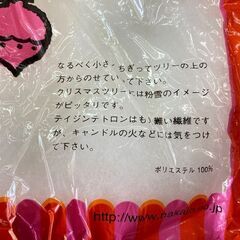 なるべく小さくちぎってツリーの上の
方からのせていって下さい。
クリスマスツリーには粉雪のイメージ
がピッタリです。
テイジンテトロンはもえ難い繊維です
が、キャンドルの火などには気をつけ
て下さい。
ポリエステル 100%